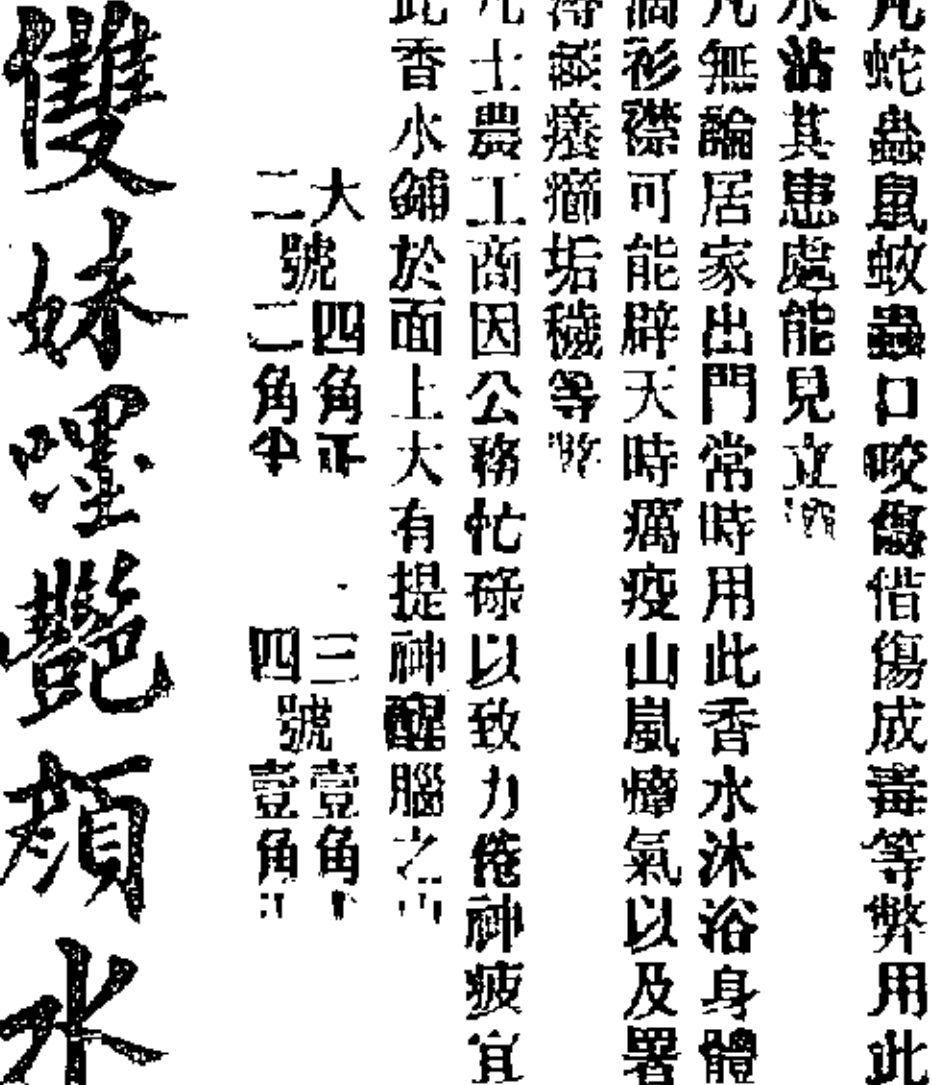 凡蛇蟲鼠蚊蟲口咬傷借傷成毒等弊用此
水沾其患處能見立消
凡無論居家出門常時用此香水沐浴身體
滴衫襟可能辟天時癘疫山嵐瘴氣以及署
癢癤垢穢等弊
凡士農工商因公務忙碌以致力倦神疲宜
此香水鋪於面上大有提神醒腦之
大二號 四角 二角半
三四號 壹角 壹角
雙妹嚜艷顏水